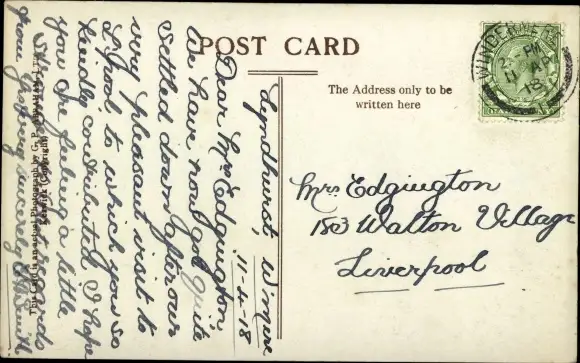 POST CARD
The Address only to be
written here
WINDERMERE
PM
11 AP
18
Lyndhurst, W'mere
11-4-18
Dear Mrs Edgington,
We have now got quite
settled down after our
very pleasant visit to
L'pool, to which you so
kindly contributed. I hope
you are feeling a little
regards
from yours sincerely
Mrs Edgington
183 Walton Village
Liverpool
This Card is an actual Photograph by G. P.
Keswick (Copyright)